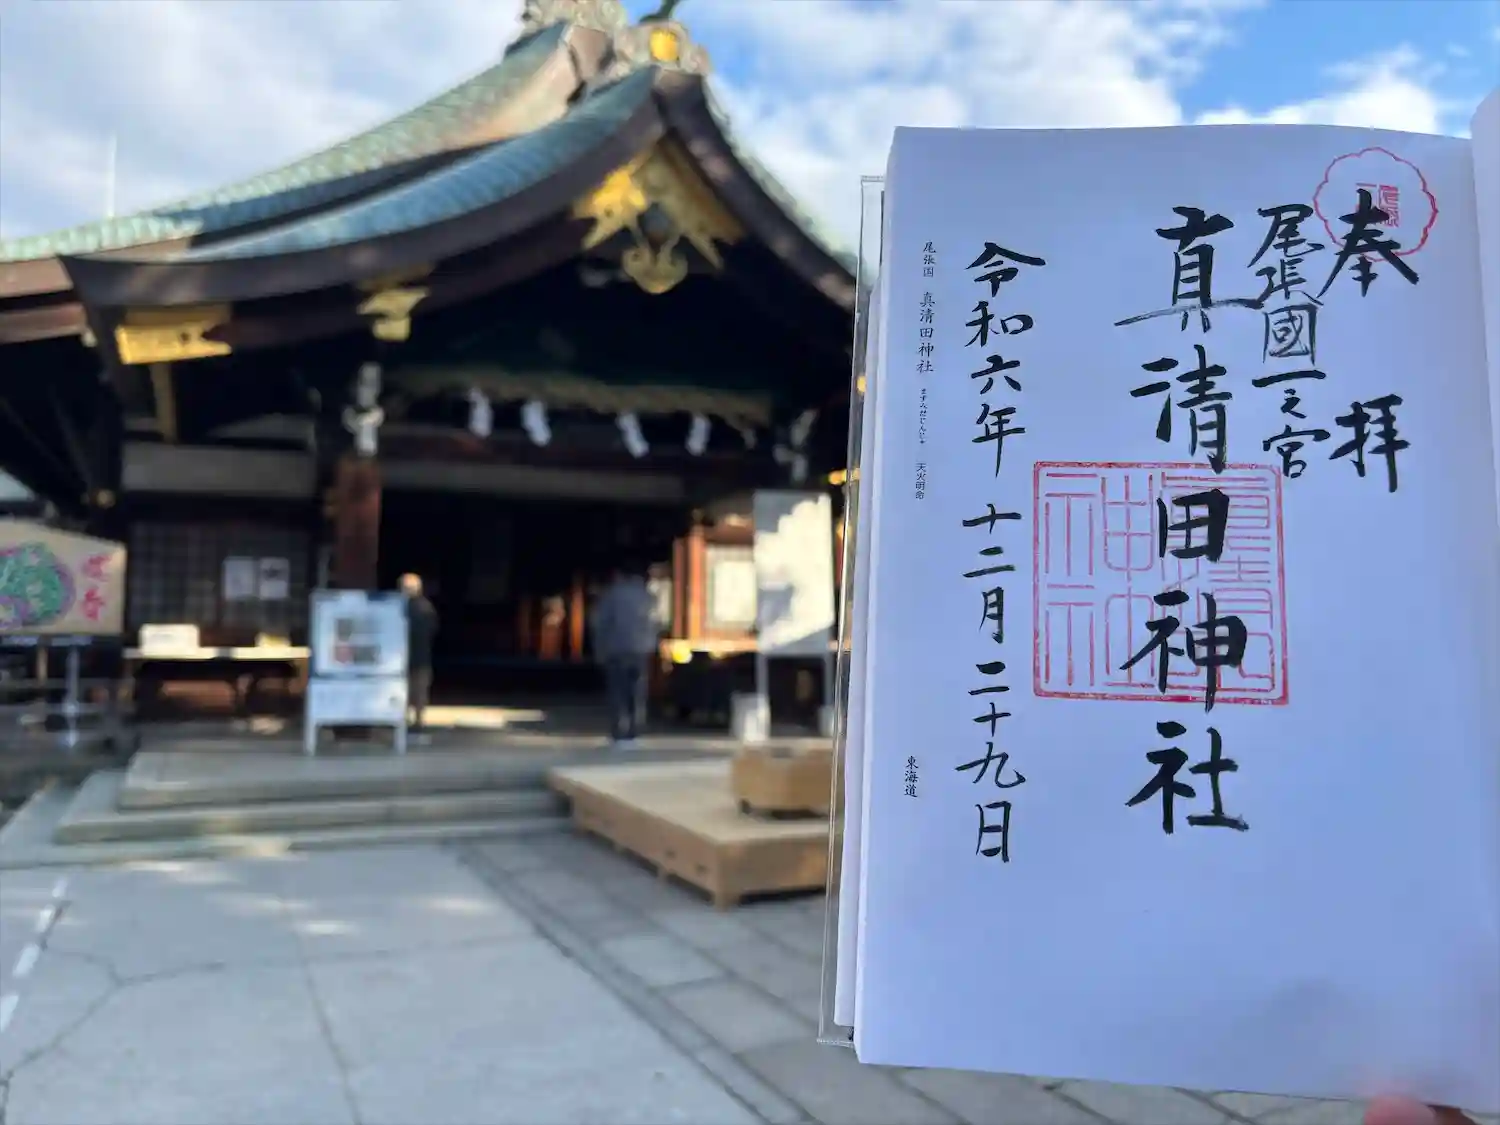 奉拝
尾張國一之宮
真清田神社
令和六年十二月二十九日
尾張国 真清田神社 ますみだじんじゃ 天火明命
東海道